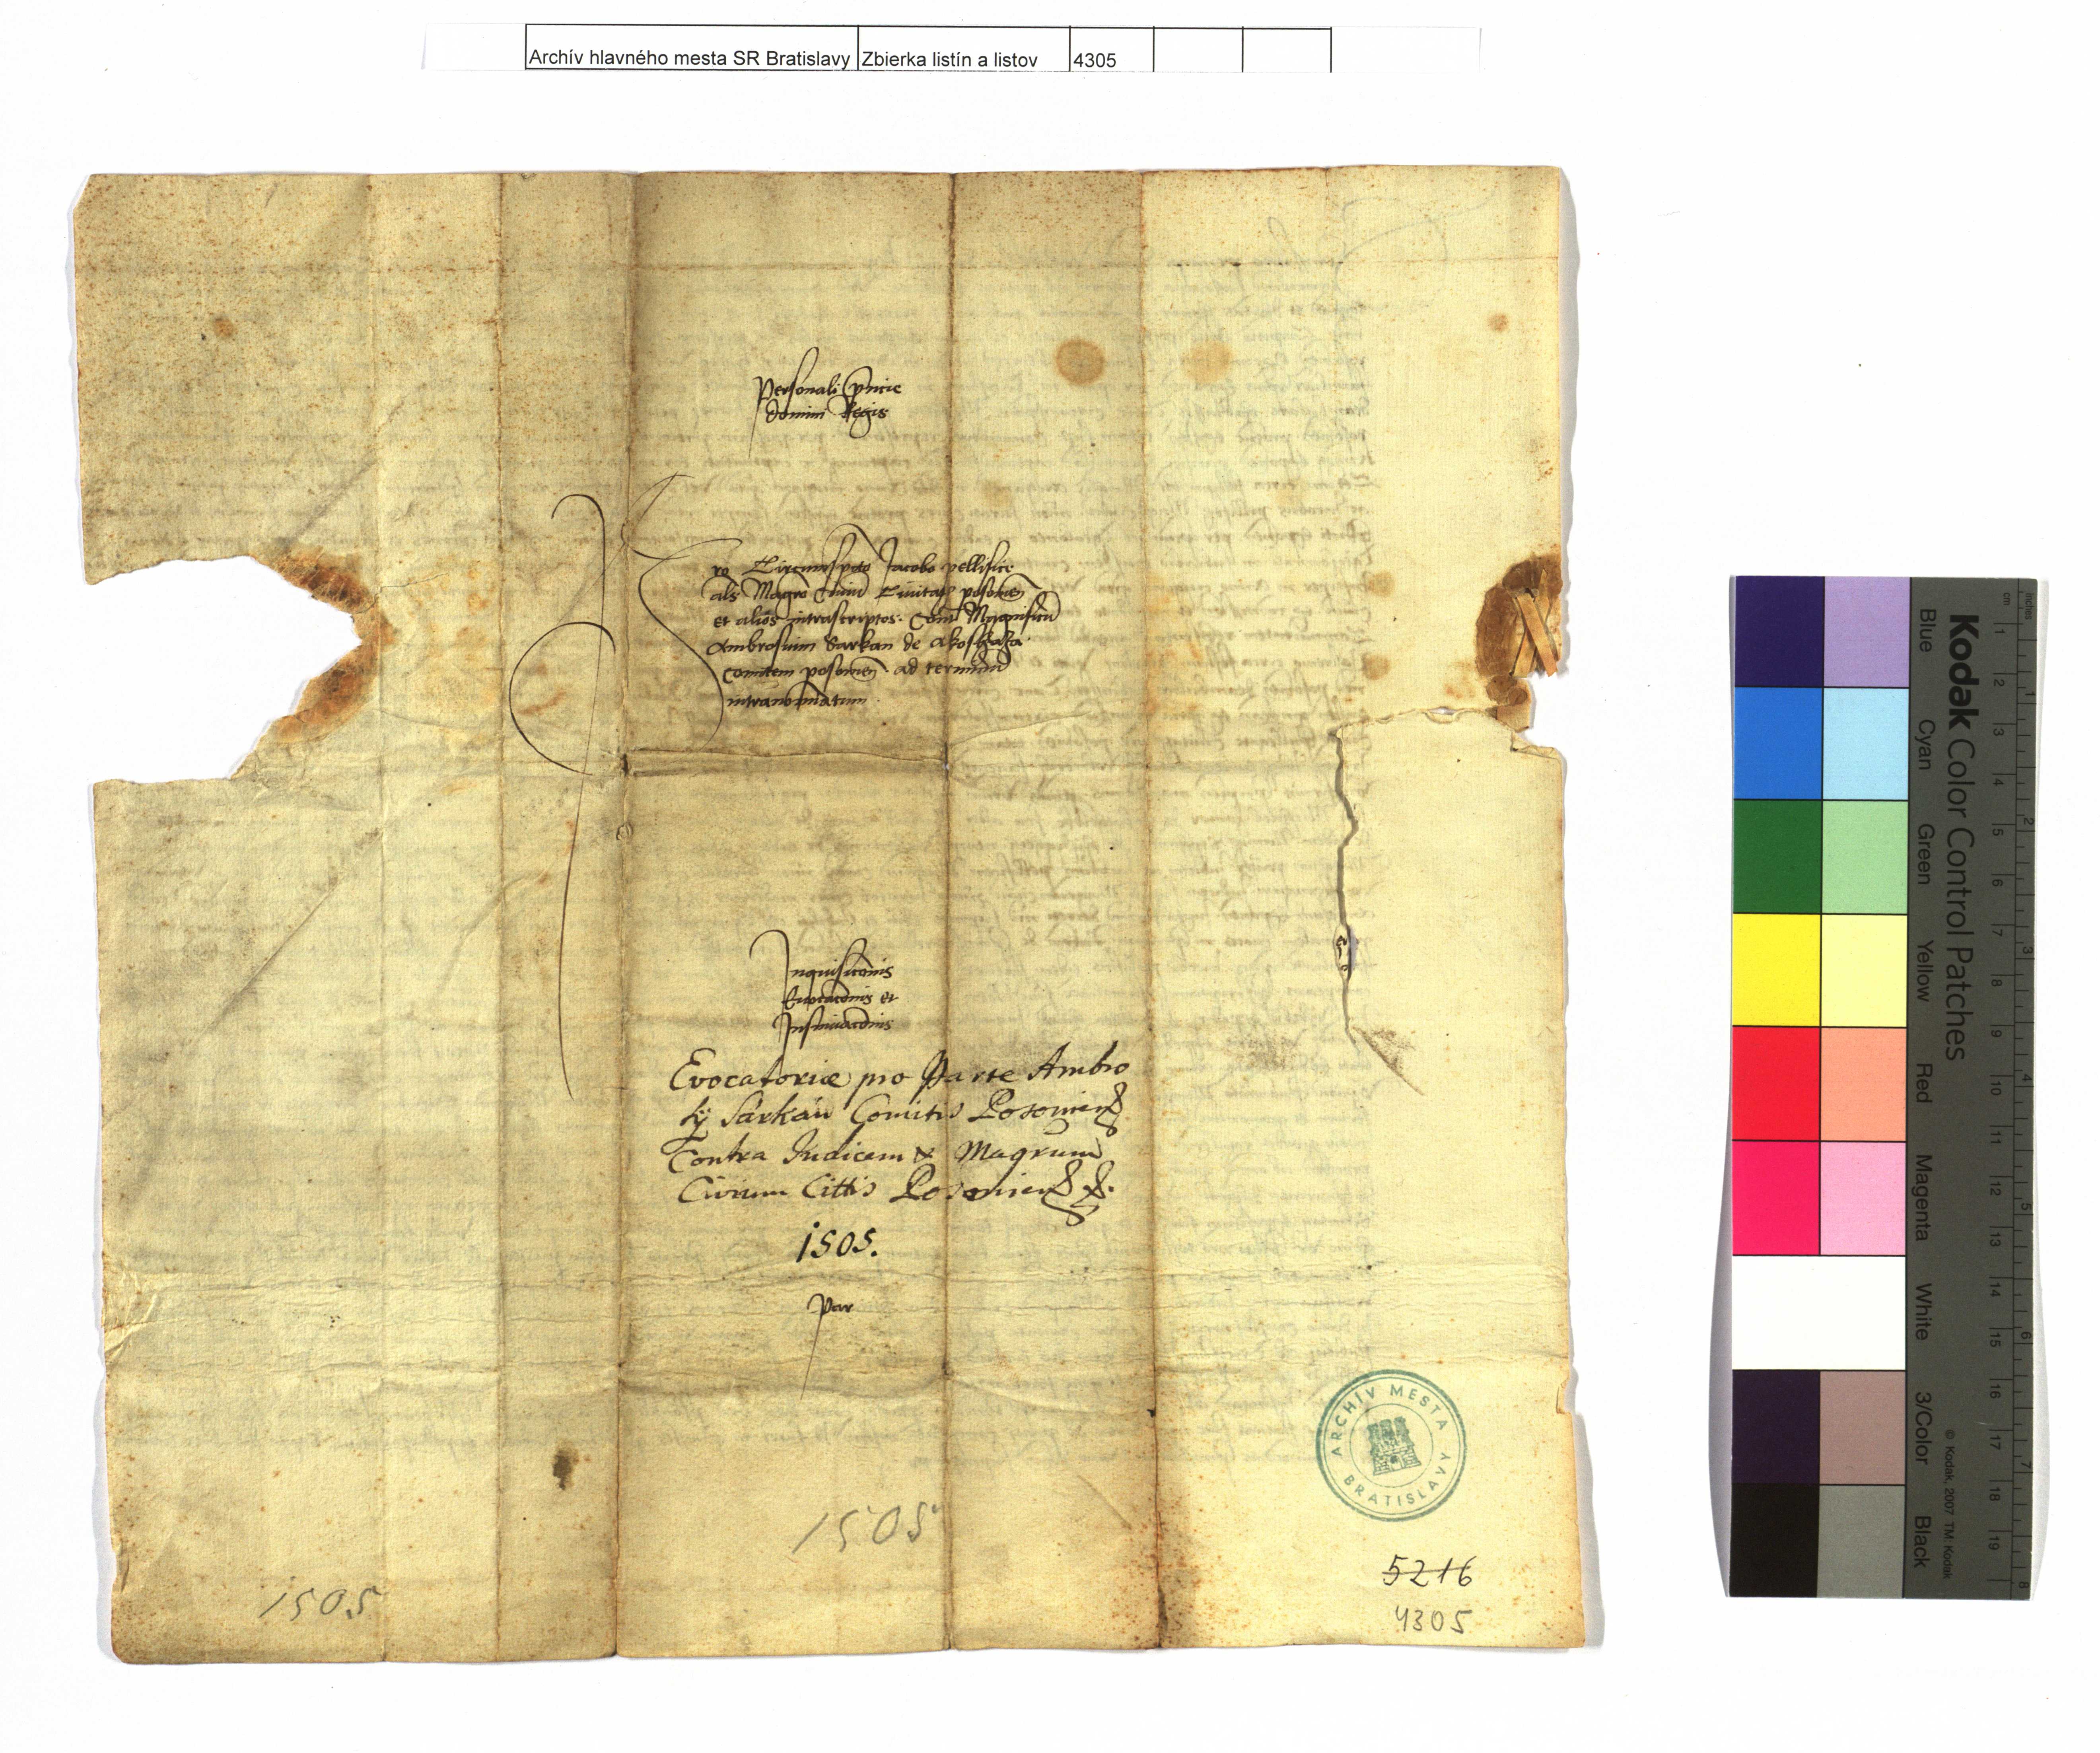 Archív hlavného mesta SR Bratislavy Zbierka listín a listov 4305
Personali pñcie
domini Regis
Pro Circumspecto Jacobo pellifice
als Magrõ Civiũ Civitatis posonieñ
et alios intrascriptos. Contra Magnificũ
Ambrosium Sarkan de Akoshaza
Comitem posonieñ. ad terminũ
intranominatum
Inquisicõnis
Euocacõnis et
Insinuacõnis
Evocatoriæ pro Parte Ambro
sÿ Sárkán Comitis Posoniens
Contra Judicem & Magrum
Civium Cittis Posoniens
1505.
par
1505
1505
ARCHÍV MESTA
BRATISLAVY
5216
4305
Kodak Color Control Patches
Blue Cyan Green Yellow Red Magenta White 3/Color Black
© Kodak, 2007 TM: Kodak
inches 1 2 3 4 5 6 7 8
cm 1 2 3 4 5 6 7 8 9 10 11 12 13 14 15 16 17 18 19